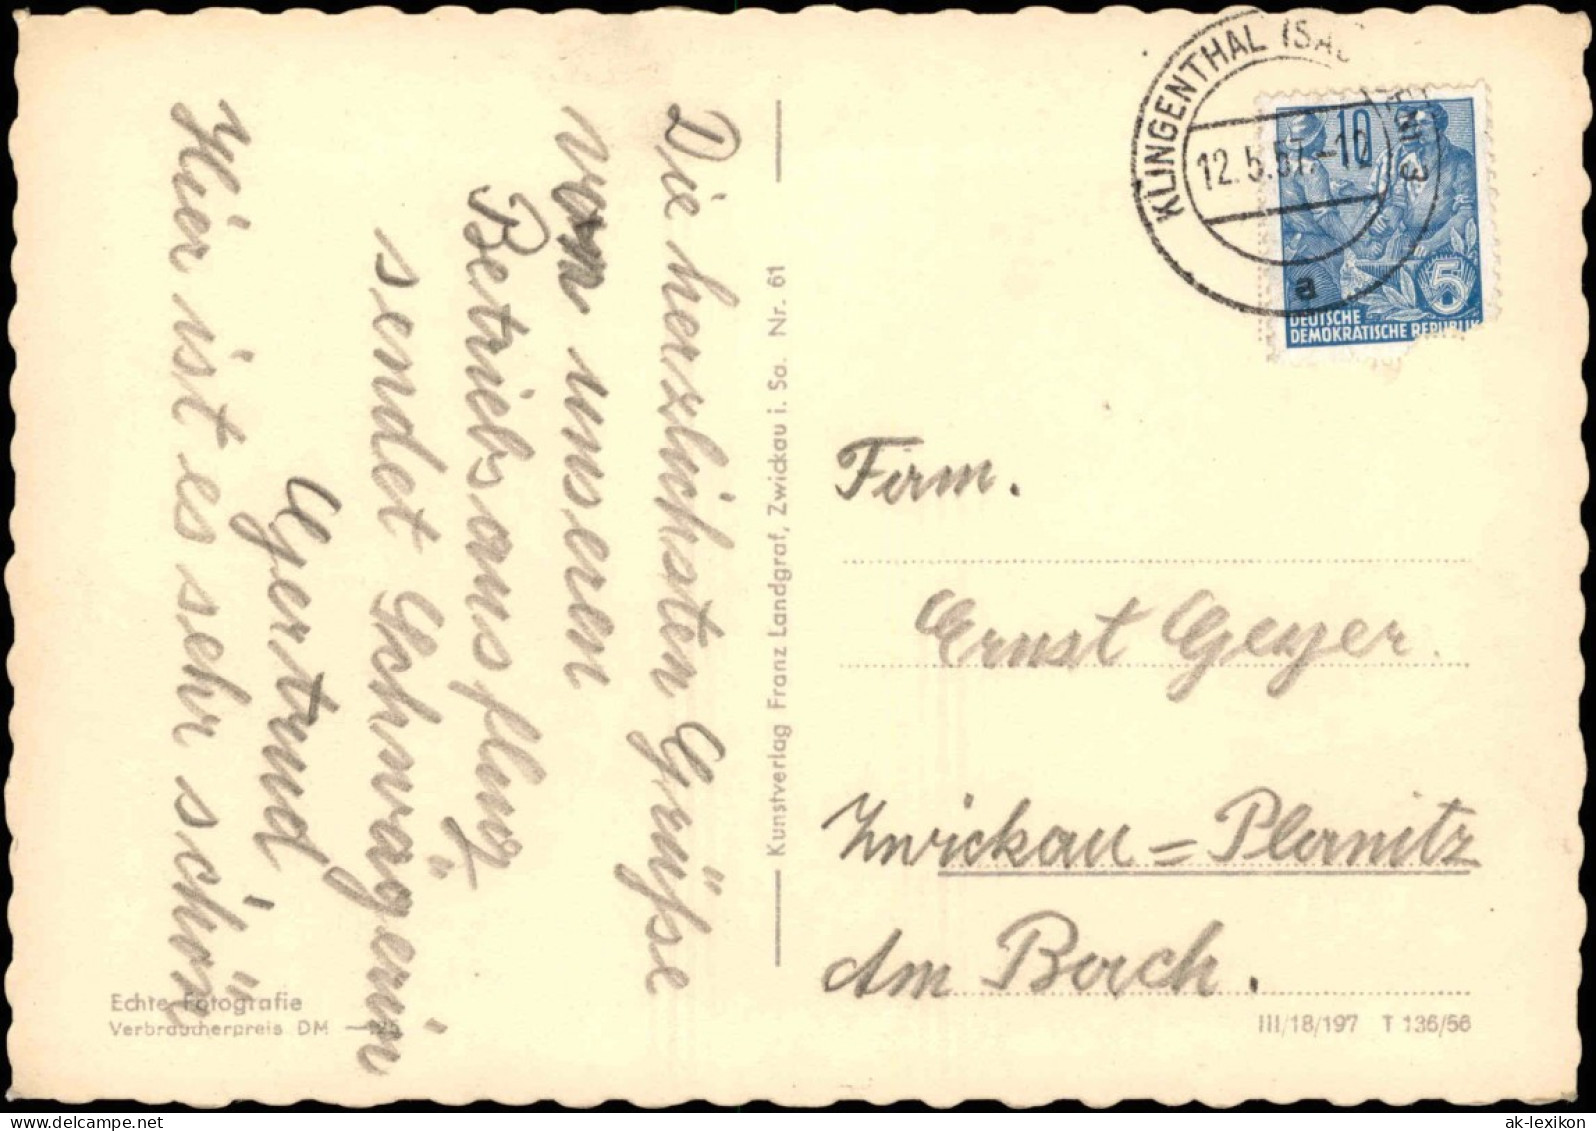 Die herzlichsten Grüße
von unseren
Betriebsausflug,
sendet Schwägerin
Gertrud,
Hier ist es sehr schön
Kunstverlag Franz Landgraf, Zwickau i. Sa. Nr. 61
Echte Fotografie
Verbraucherpreis DM
KLINGENTHAL (SA
12.5.57.-10
a
10
5
DEUTSCHE
DEMOKRATISCHE REPUBLIK
Firm.
Ernst Geyer.
Zwickau = Planitz
Am Bach.
III/18/197 T 136/56
ak-lexikon